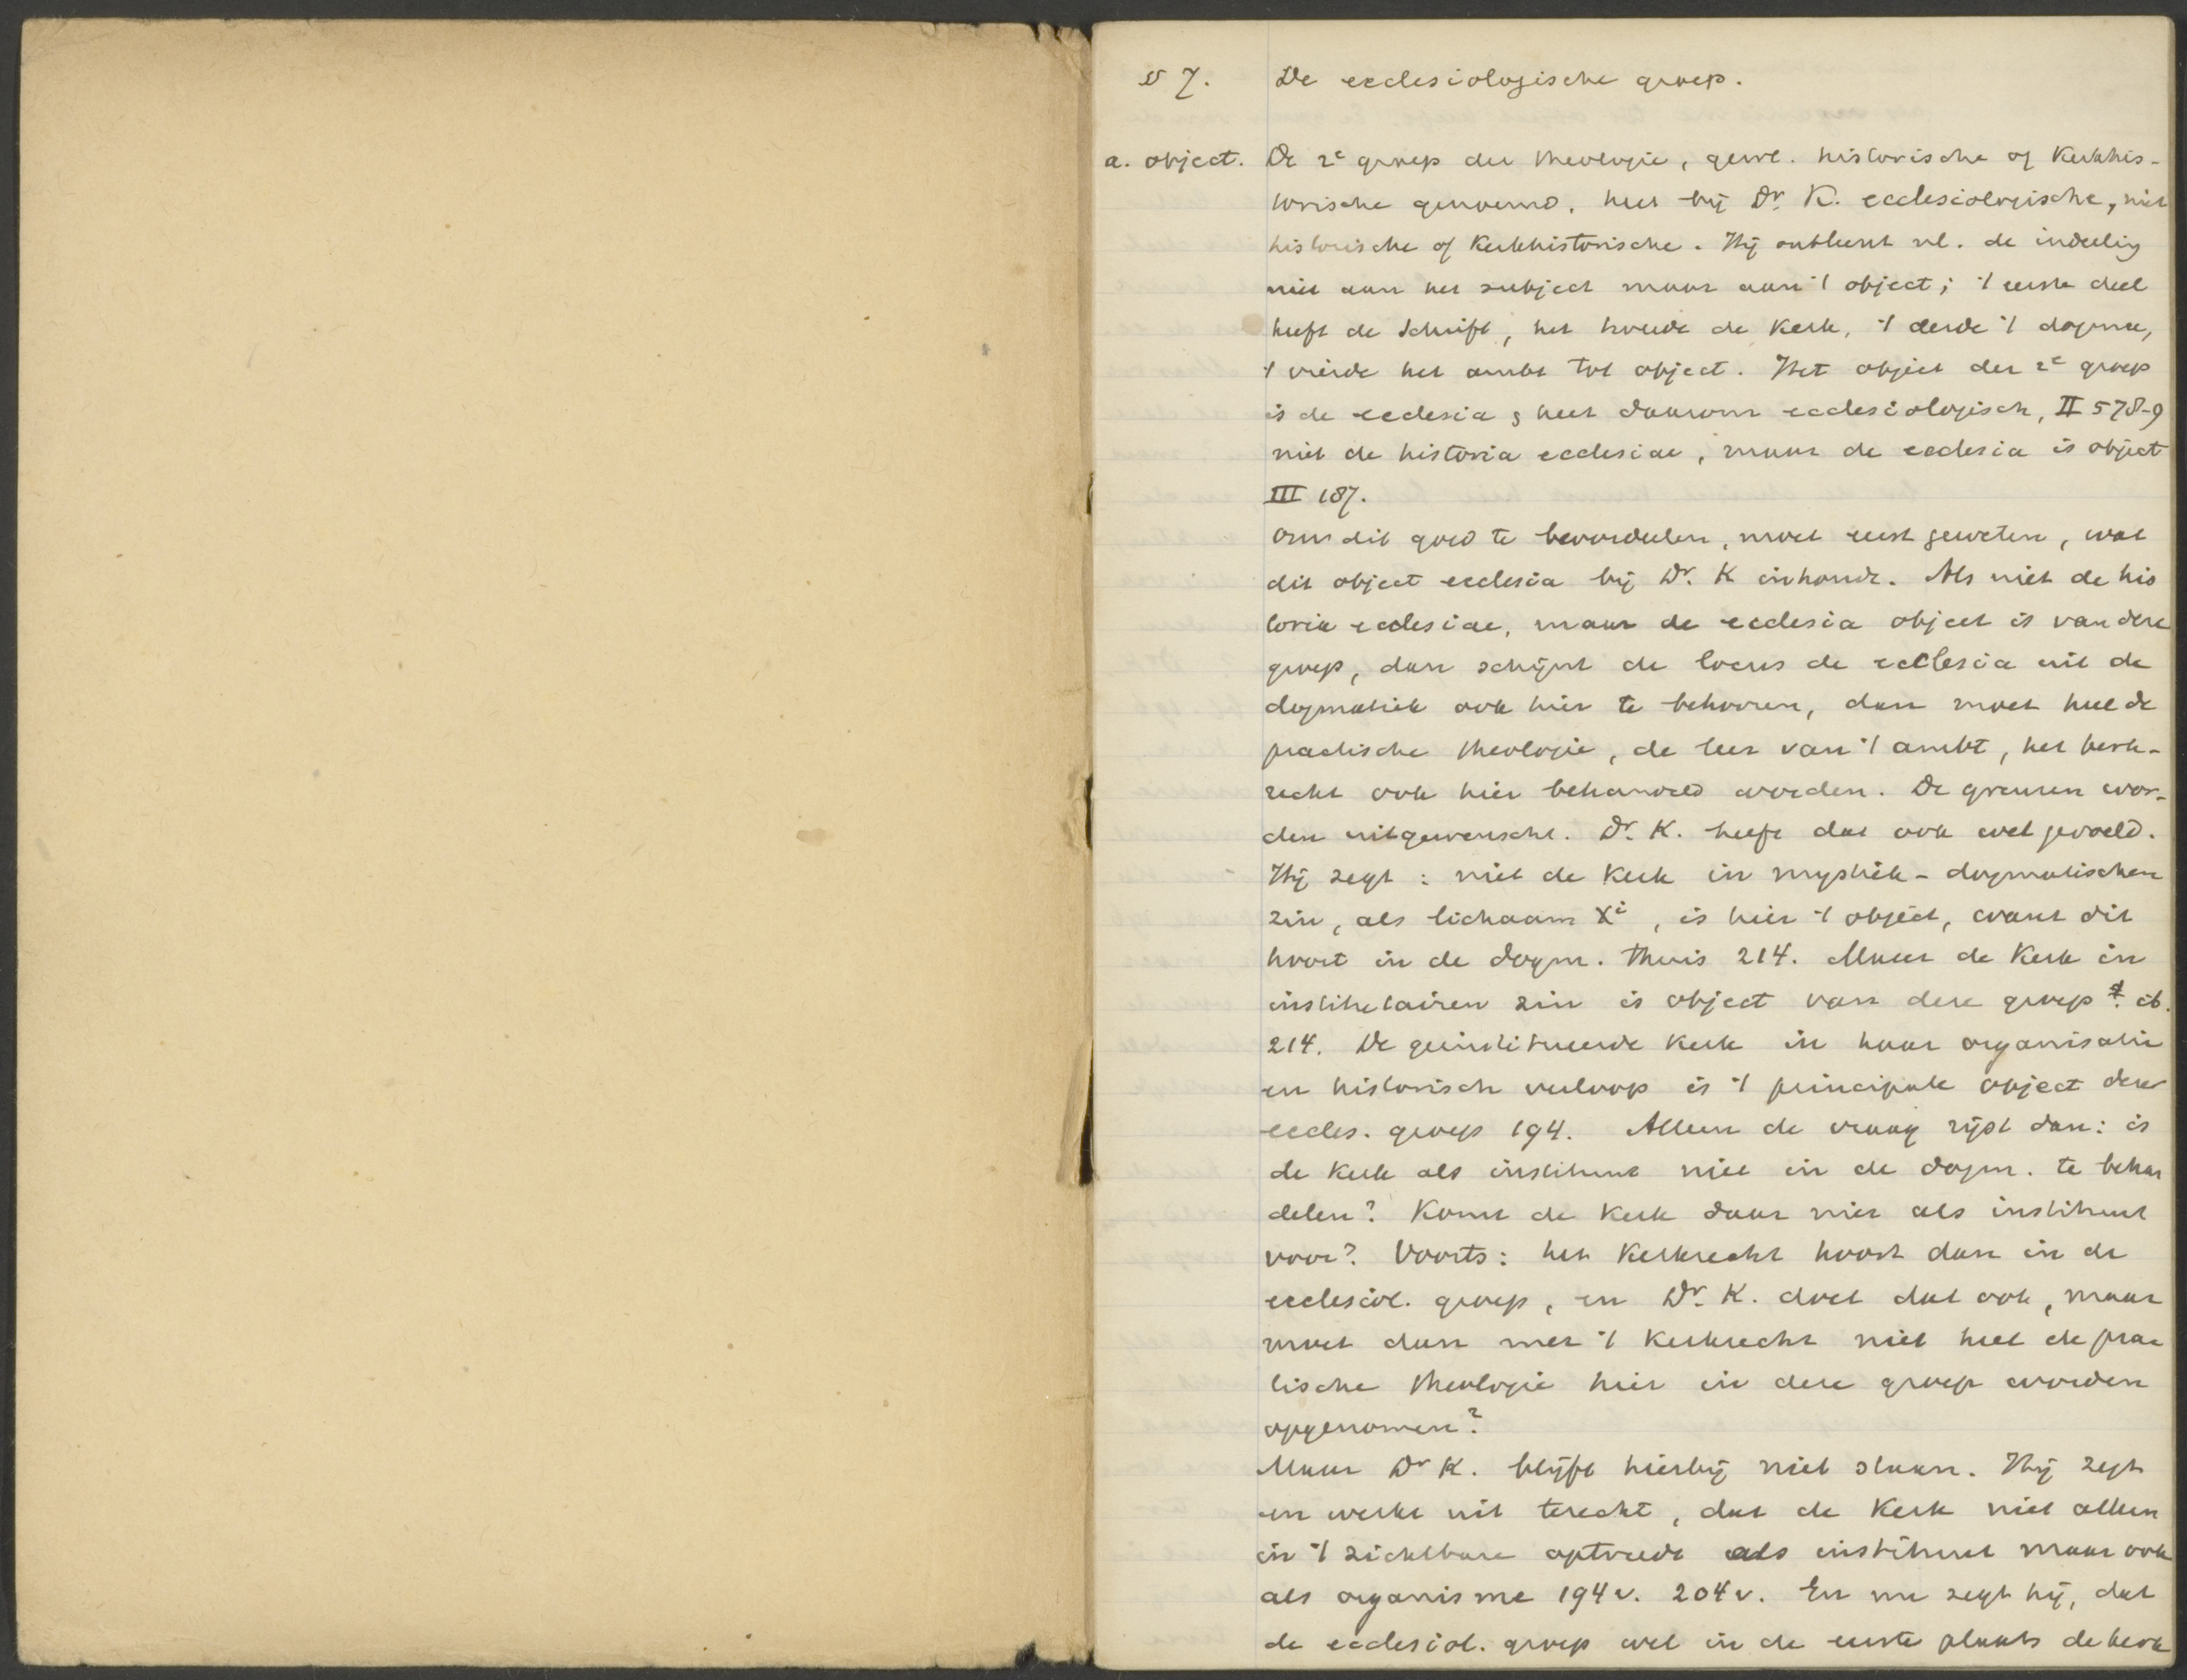 § 7. De ecclesiologische groep.
a. object. De 2e groep der theologie, gew. historische of Kerkhis-
torische genoemd, heet bij Dr. K. ecclesiologische, niet
historische of Kerkhistorische. Hij ontleent nl. de indeeling
niet aan het subject maar aan 't object; 't eerste deel
heeft de Schrift, het tweede de Kerk, 't derde 't dogma,
't vierde het ambt tot object. Het object der 2e groep
is de ecclesia & heet daarom ecclesiologisch, II 578-9
niet de historia ecclesiae, maar de ecclesia is object
III 187.
Om dit goed te beoordeelen, moet eerst geweten, wat
dit object ecclesia bij Dr. K inhoudt. Als niet de his
toria ecclesiae, maar de ecclesia object is van deze
groep, dan schijnt de locus de ecclesia uit de
dogmatiek ook hier te behooren, dan moet heel de
practische theologie, de leer van 't ambt, het kerk-
recht ook hier behandeld worden. De grenzen wor-
den uitgewischt. Dr. K. heeft dat ook wel gevoeld.
Hij zegt: niet de Kerk in mystiek-dogmatischen
zin, als lichaam Xi, is hier 't object, want dit
hoort in de dogm. thuis 214. Maar de Kerk in
institutairen zin is object van deze groep. ib.
214. De geinstitueerde Kerk in haar organisatie
en historisch verloop is 't principale object der
eccles. groep 194. Alleen de vraag rijst dan: is
de Kerk als instituut niet in de dogm. te behan
delen? Komt de Kerk daar niet als instituut
voor? Voorts: het Kerkrecht hoort dan in de
ecclesiol. groep, en Dr. K. doet dat ook, maar
moet dan met 't Kerkrecht niet heel de prac
tische theologie hier in deze groep worden
opgenomen?
Maar Dr K. blijft hierbij niet staan. Hij zegt
en werkt uit terecht, dat de Kerk niet alleen
in 't zichtbare optreedt als instituut maar ook
als organisme 194v. 204v. En nu zegt hij, dat
de ecclesiol. groep wel in de eerste plaats de kerk